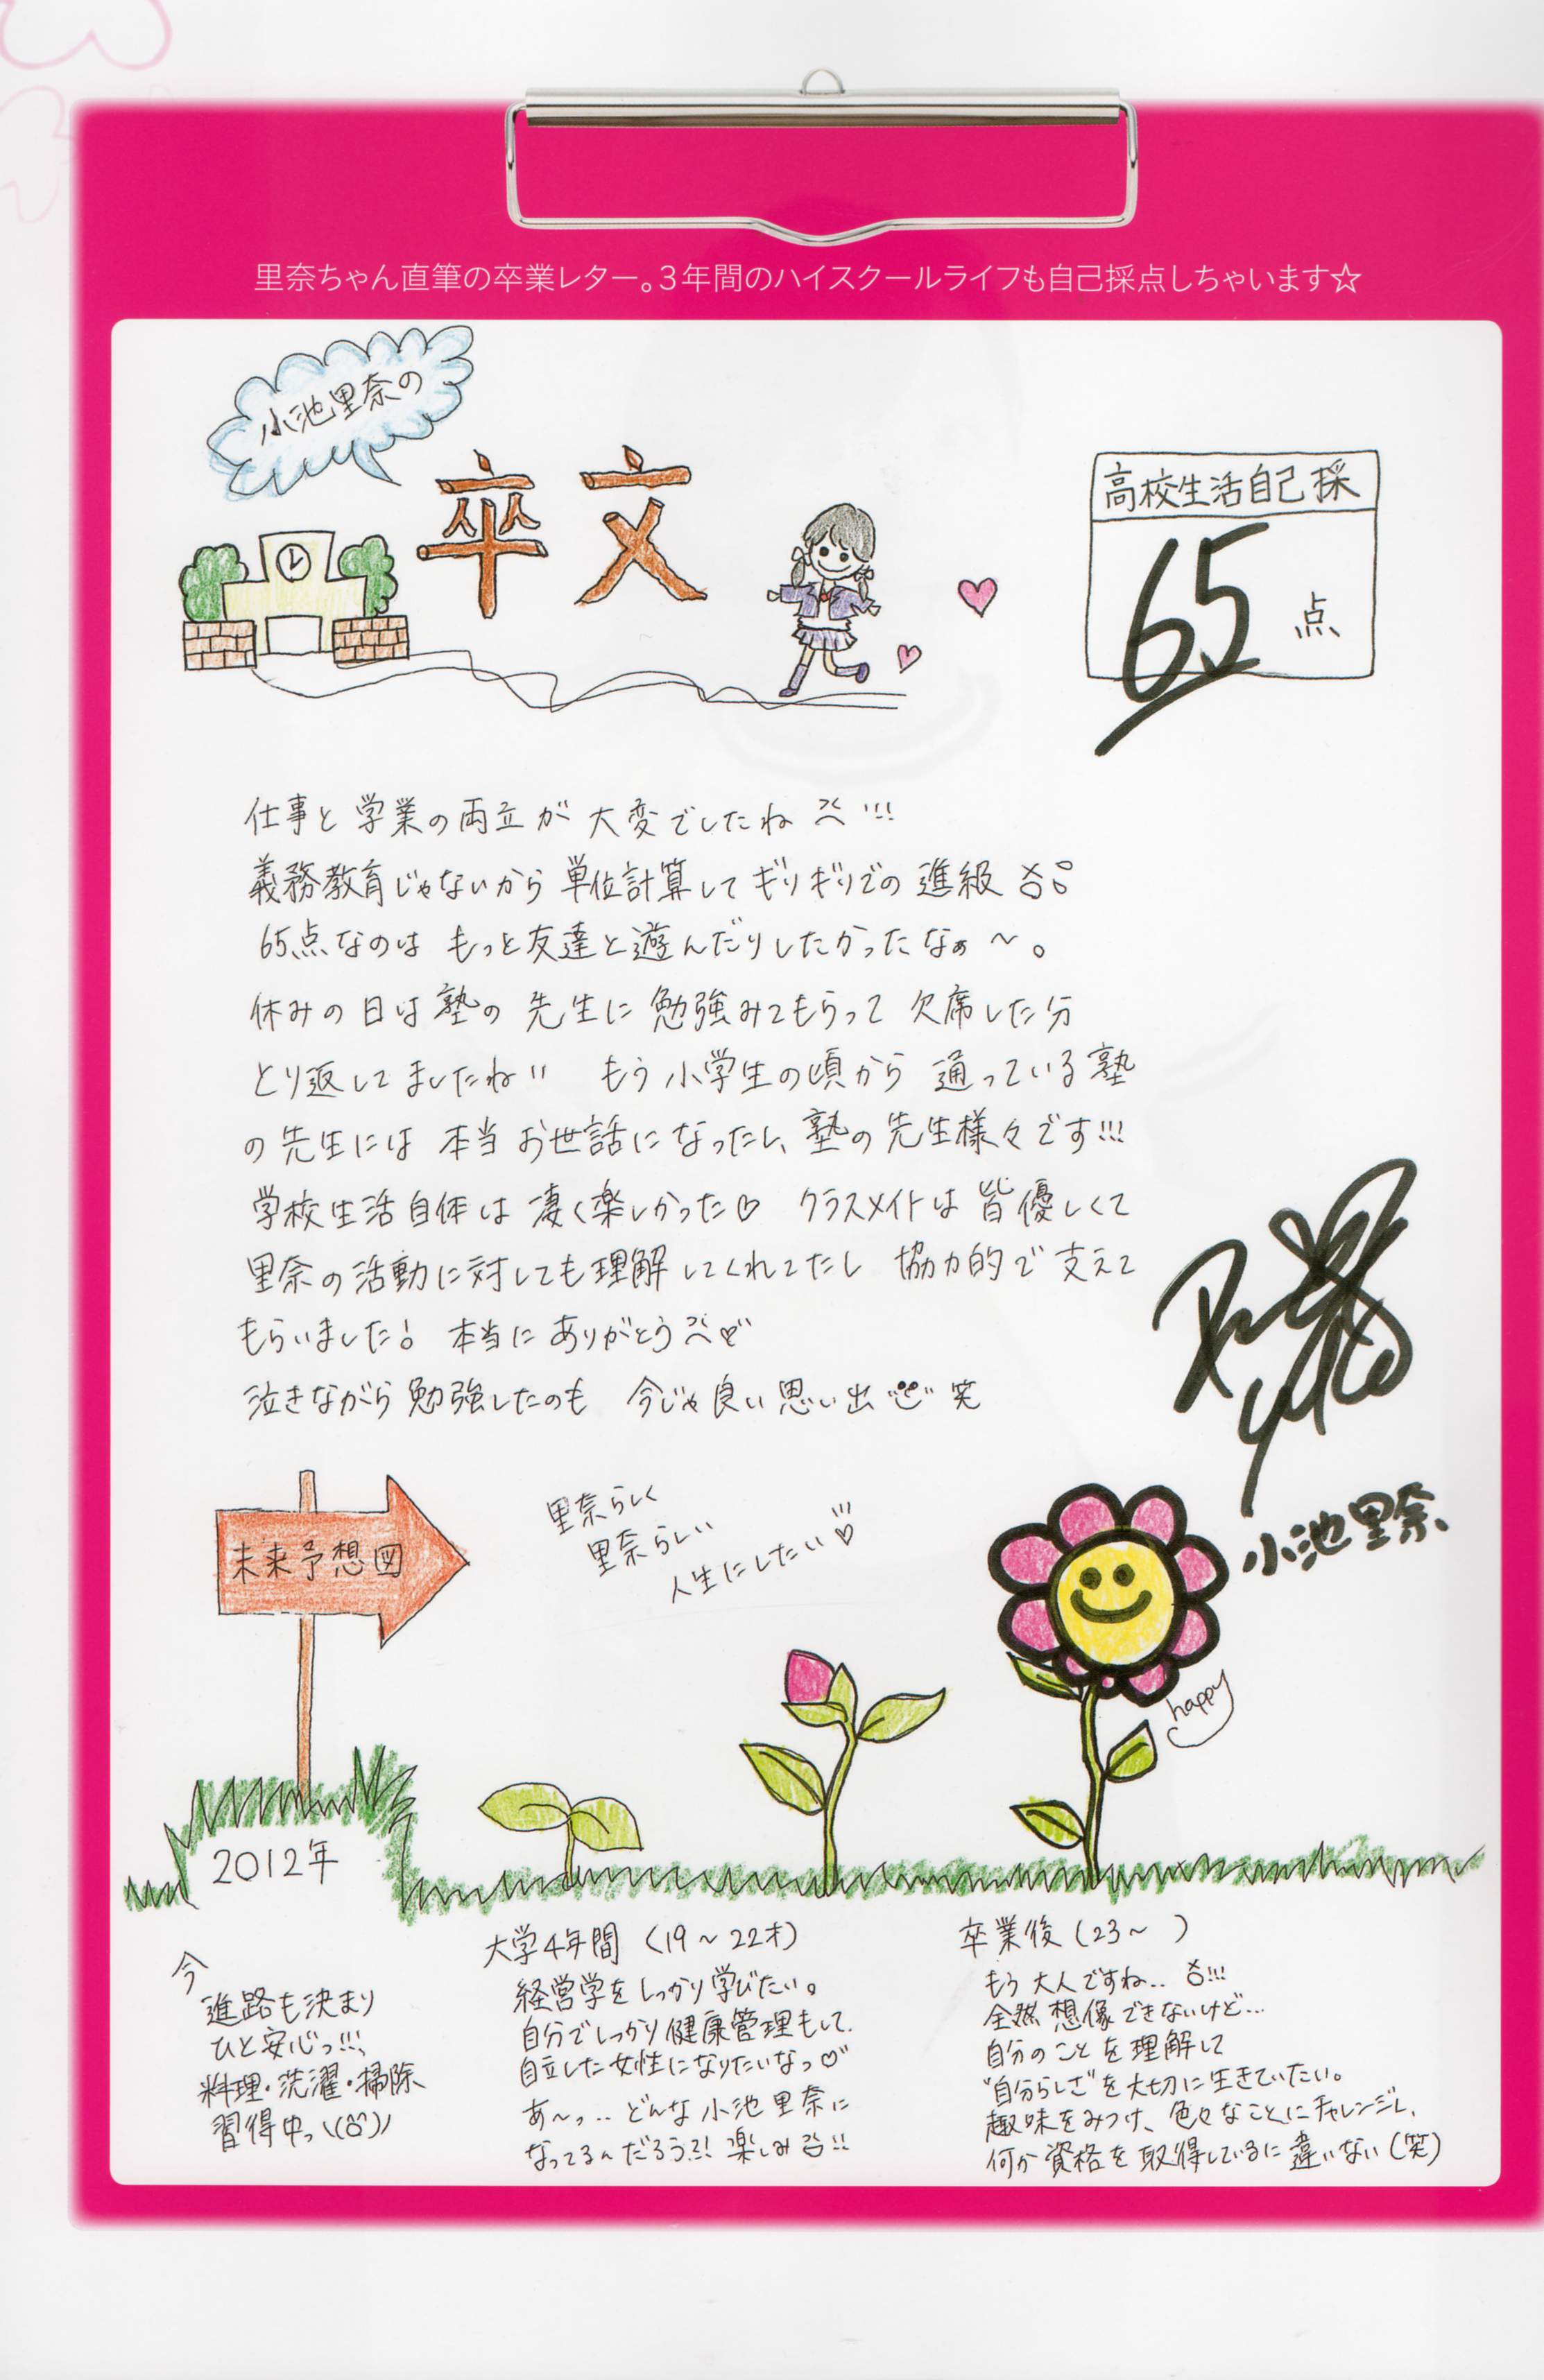 里奈ちゃん直筆の卒業レター。3年間のハイスクールライフも自己採点しちゃいます☆
小池里奈の
卒文
高校生活自己採
65点
仕事と学業の両立が大変でしたね!!!
義務教育じゃないから単位計算してギリギリでの進級
65点なのはもっと友達と遊んだりしたかったなぁ〜。
休みの日は塾の先生に勉強みてもらって欠席した分
とり返してましたね!! もう小学生の頃から通っている塾
の先生には本当お世話になったし、塾の先生様々です!!!
学校生活自体は凄く楽しかった♡ クラスメイトは皆優しくて
里奈の活動に対しても理解してくれてたし協力的で支えて
もらいました! 本当にありがとう♡
泣きながら勉強したのも今じゃ良い思い出 笑
小池里奈
未来予想図
里奈らしく
里奈らしい
人生にしたい♡!!!
happy
2012年
今
進路も決まり
ひと安心っ!!!
料理・洗濯・掃除
習得中っ
大学4年間(19〜22才)
経営学をしっかり学びたい。
自分でしっかり健康管理もして、
自立した女性になりたいなっ♡
あ〜っ..どんな小池里奈に
なってるんだろう?! 楽しみ!!
卒業後(23〜 )
もう大人ですね..!!!
全然想像できないけど...
自分のことを理解して
"自分らしさ"を大切に生きていたい。
趣味をみつけ、色々なことにチャレンジし、
何か資格を取得しているに違いない(笑)